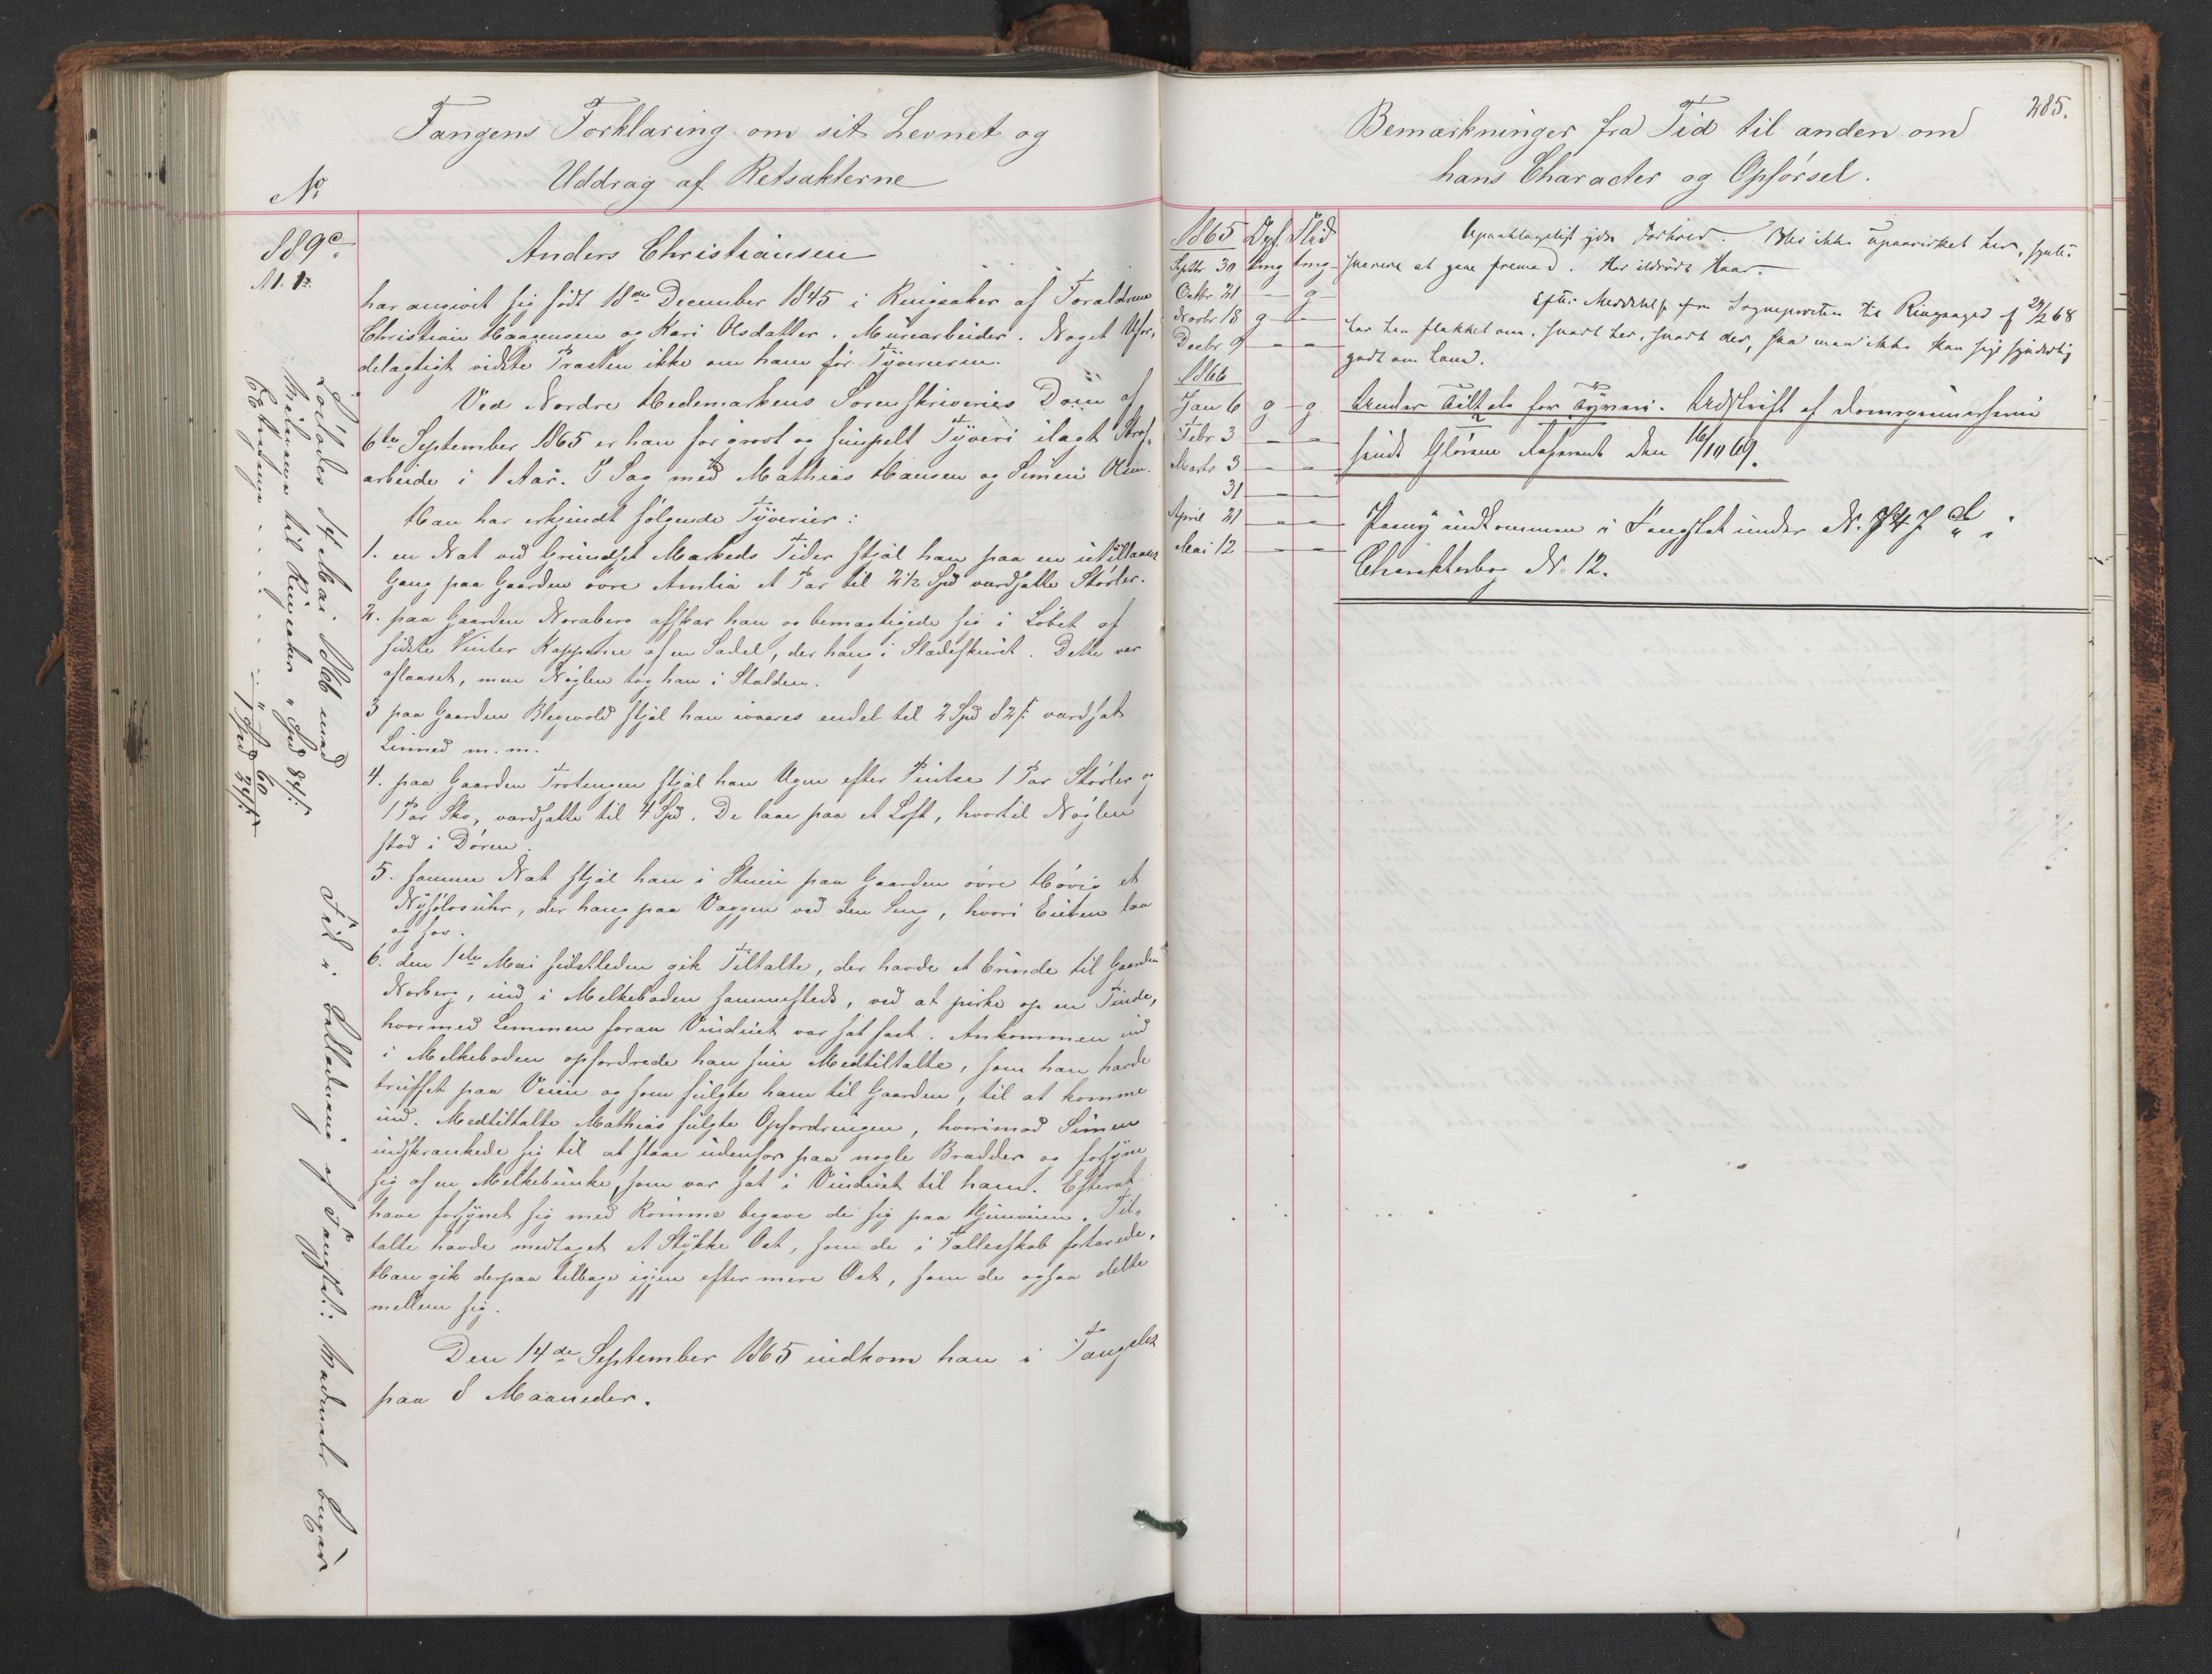 Fangens Forklaring om sit Levnet og
Uddrag af Retsakterne
No
889c.
M. 1.
Anders Christiansen
har angivet sig født 18de December 1845 i Ringsaker af Forældrene
Christian Haagensen og Kari Olsdatter. Murarbeider. Noget Ufor-
delagtigt vidste Præsten ikke om ham før Tyverierne.
Ved Nordre Hedemarkens Sorenskriveries Dom af
6te September 1865 er han for grovt og simpelt Tyveri ilagt Straf-
arbeide i 1 Aar. I Sag med Mathias Hansen og Simen Olsen.
Han har erkjendt følgende Tyverier:
1. en Nat ved Grundset Markeds Tider stjal han paa en
Gang paa Gaarden øvre Amlia et Par til 2 1/2 Spd værdsatte Støvler.
2. paa Gaarden Noraberg afskar han og bemægtigede sig i Løbet af
sidste Vinter Kapperne af en Sadel, der hang i Slædeskuret. Dette var
aflaaset, men Nøglen tog han i Stalden.
3 paa Gaarden stjal han endel til 2 Spd 82 s: værdsat
Linned m. m.
4. paa Gaarden Frotungen stjal han Ugen efter Pintse 1 Par Støvler og
1 Par Sko, værdsatte til 4 Spd. De laae paa et Loft, hvortil Nøglen
stod i Døren.
5. samme Nat stjal han i Stuen paa Gaarden øvre Høvig et
Nysølvsuhr, der hang paa Væggen ved den Seng, hvori Eieren laa
og sov.
6. den 1ste Mai sidstleden gik Tiltalte, der havde et Erinde til Gaarden
Norberg, ind i Melkeboden sammesteds, ved at pirke op en Pinde,
hvormed Lemmen foran Vinduet var sat fast. Ankommen ind
i Melkeboden opfordrede han sine Medtiltalte, som han havde
truffet paa Veien og som fulgte ham til Gaarden, til at komme
ind. Medtiltalte Mathias fulgte Opfordringen, hvorimod Simen
indskrænkede sig til at staae udenfor paa nogle Brædder og forsyne
sig af en Melkebunke, som var sat i Vinduet til ham. Efterat
have forsynet sig med Rømme begave de sig paa Hjemveien. Til-
talte havde medtaget et Stykke Ost, som de i Fællesskab fortærede.
Han gik derpaa tilbage igjen efter mere Ost, som de ogsaa delte
mellem sig.
Den 14de September 1865 indkom han i Fangeles
paa 8 Maaneder.
Løslades 14 Mai 1866 med
til Ringsaker " Spd 84 s:
" 60
1 Spd
Bemærkninger fra Tid til anden om
hans Character og Opførsel.
285.
1865 Opf. Flid
Septbr 30 tmg tmg
Octbr 21 — g
Novbr 18 g —
Decbr 9 — —
1866
Jan 6 g g
Febr 3 — —
Marts 3 — —
31 — —
April 21 — —
Mai 12 — —
Upaaklageligt ydre Forhold. Blev ikke upaavirket her, synte
at gaae fremad. Har Haar.
Efter Meddelelse fra Sognepræsten til Ringsager af 29/2 68
har han flakket om, snart her, snart der, saa man ikke kan sige synderlig
godt om ham.
Under Tiltale for Tyveri. Udskrift af
sendt den 16/10 69.
Paany indkommen i Fangslet under N. 747
Charakterbog N. 12.